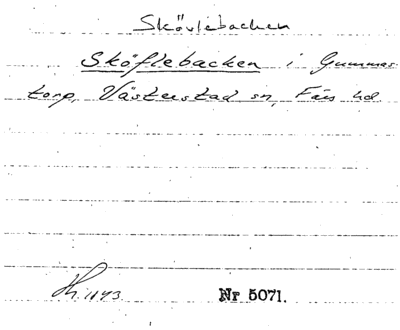 Skövlebacken
Sköflebacken i Gummas-
torp, Västerstad sn, Färs hd
Nr 5071.